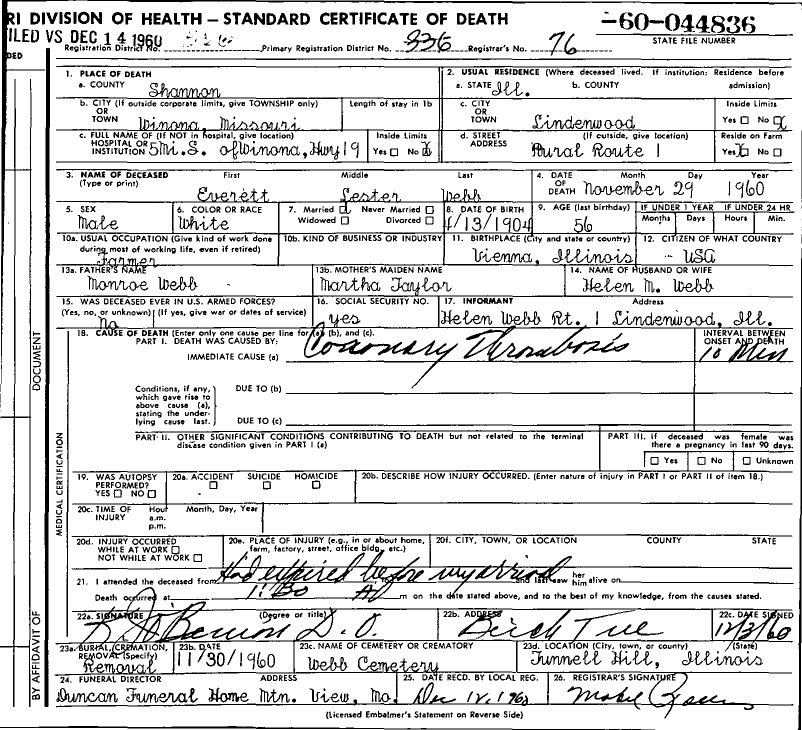 RI DIVISION OF HEALTH — STANDARD CERTIFICATE OF DEATH
-60-044836
ILED VS DEC 14 1960
Registration District No. Primary Registration District No. 336 Registrar's No. 76 STATE FILE NUMBER
DED
1. PLACE OF DEATH
a. COUNTY Shannon
2. USUAL RESIDENCE (Where deceased lived. If institution: Residence before admission)
a. STATE Ill. b. COUNTY
b. CITY (If outside corporate limits, give TOWNSHIP only) OR TOWN Winona, Missouri
Length of stay in 1b
c. CITY OR TOWN Lindenwood
Inside Limits Yes ☐ No ☒
c. FULL NAME OF (If NOT in hospital, give location) HOSPITAL OR INSTITUTION 5Mi.S. of Winona, Hwy 19
Inside Limits Yes ☐ No ☒
d. STREET ADDRESS (If outside, give location) Rural Route 1
Reside on Farm Yes ☒ No ☐
3. NAME OF DECEASED (Type or print) First Middle Last
Everett Lester Webb
4. DATE OF DEATH Month Day Year
November 29 1960
5. SEX Male
6. COLOR OR RACE White
7. Married ☒ Never Married ☐ Widowed ☐ Divorced ☐
8. DATE OF BIRTH 4/13/1904
9. AGE (last birthday) 56
IF UNDER 1 YEAR Months Days
IF UNDER 24 HR Hours Min.
10a. USUAL OCCUPATION (Give kind of work done during most of working life, even if retired) Farmer
10b. KIND OF BUSINESS OR INDUSTRY
11. BIRTHPLACE (City and state or country) Vienna, Illinois
12. CITIZEN OF WHAT COUNTRY USA
13a. FATHER'S NAME Monroe Webb
13b. MOTHER'S MAIDEN NAME Martha Taylor
14. NAME OF HUSBAND OR WIFE Helen M. Webb
15. WAS DECEASED EVER IN U.S. ARMED FORCES? (Yes, no, or unknown) (If yes, give war or dates of service) No
16. SOCIAL SECURITY NO. yes
17. INFORMANT Address
Helen Webb Rt. 1 Lindenwood, Ill.
18. CAUSE OF DEATH (Enter only one cause per line for (a), (b), and (c).
PART I. DEATH WAS CAUSED BY:
IMMEDIATE CAUSE (a) Coronary Thrombosis
INTERVAL BETWEEN ONSET AND DEATH 10 Min
Conditions, if any, which gave rise to above cause (a), stating the underlying cause last.
DUE TO (b)
DUE TO (c)
PART II. OTHER SIGNIFICANT CONDITIONS CONTRIBUTING TO DEATH but not related to the terminal disease condition given in PART I (a)
PART III. If deceased was female was there a pregnancy in last 90 days.
☐ Yes ☐ No ☐ Unknown
19. WAS AUTOPSY PERFORMED? YES ☐ NO ☐
20a. ACCIDENT ☐ SUICIDE ☐ HOMICIDE ☐
20b. DESCRIBE HOW INJURY OCCURRED. (Enter nature of injury in PART I or PART II of item 18.)
20c. TIME OF INJURY Hour a.m. p.m. Month, Day, Year
20d. INJURY OCCURRED WHILE AT WORK ☐ NOT WHILE AT WORK ☐
20e. PLACE OF INJURY (e.g., in or about home, farm, factory, street, office bldg., etc.)
20f. CITY, TOWN, OR LOCATION COUNTY STATE
21. I attended the deceased from Had expired before my arrival and last saw her him alive on
Death occurred at 1:30 A m on the date stated above, and to the best of my knowledge, from the causes stated.
22a. SIGNATURE (Degree or title) D.O.
22b. ADDRESS Birch Tree
22c. DATE SIGNED 12/3/60
23a. BURIAL, CREMATION, REMOVAL (Specify) Removal
23b. DATE 11/30/1960
23c. NAME OF CEMETERY OR CREMATORY Webb Cemetery
23d. LOCATION (City, town, or county) (State) Tunnell Hill, Illinois
24. FUNERAL DIRECTOR ADDRESS
Duncan Funeral Home Mtn. View, Mo.
25. DATE RECD. BY LOCAL REG. Dec 12, 1960
26. REGISTRAR'S SIGNATURE Mabel
(Licensed Embalmer's Statement on Reverse Side)
DOCUMENT
MEDICAL CERTIFICATION
BY AFFIDAVIT OF